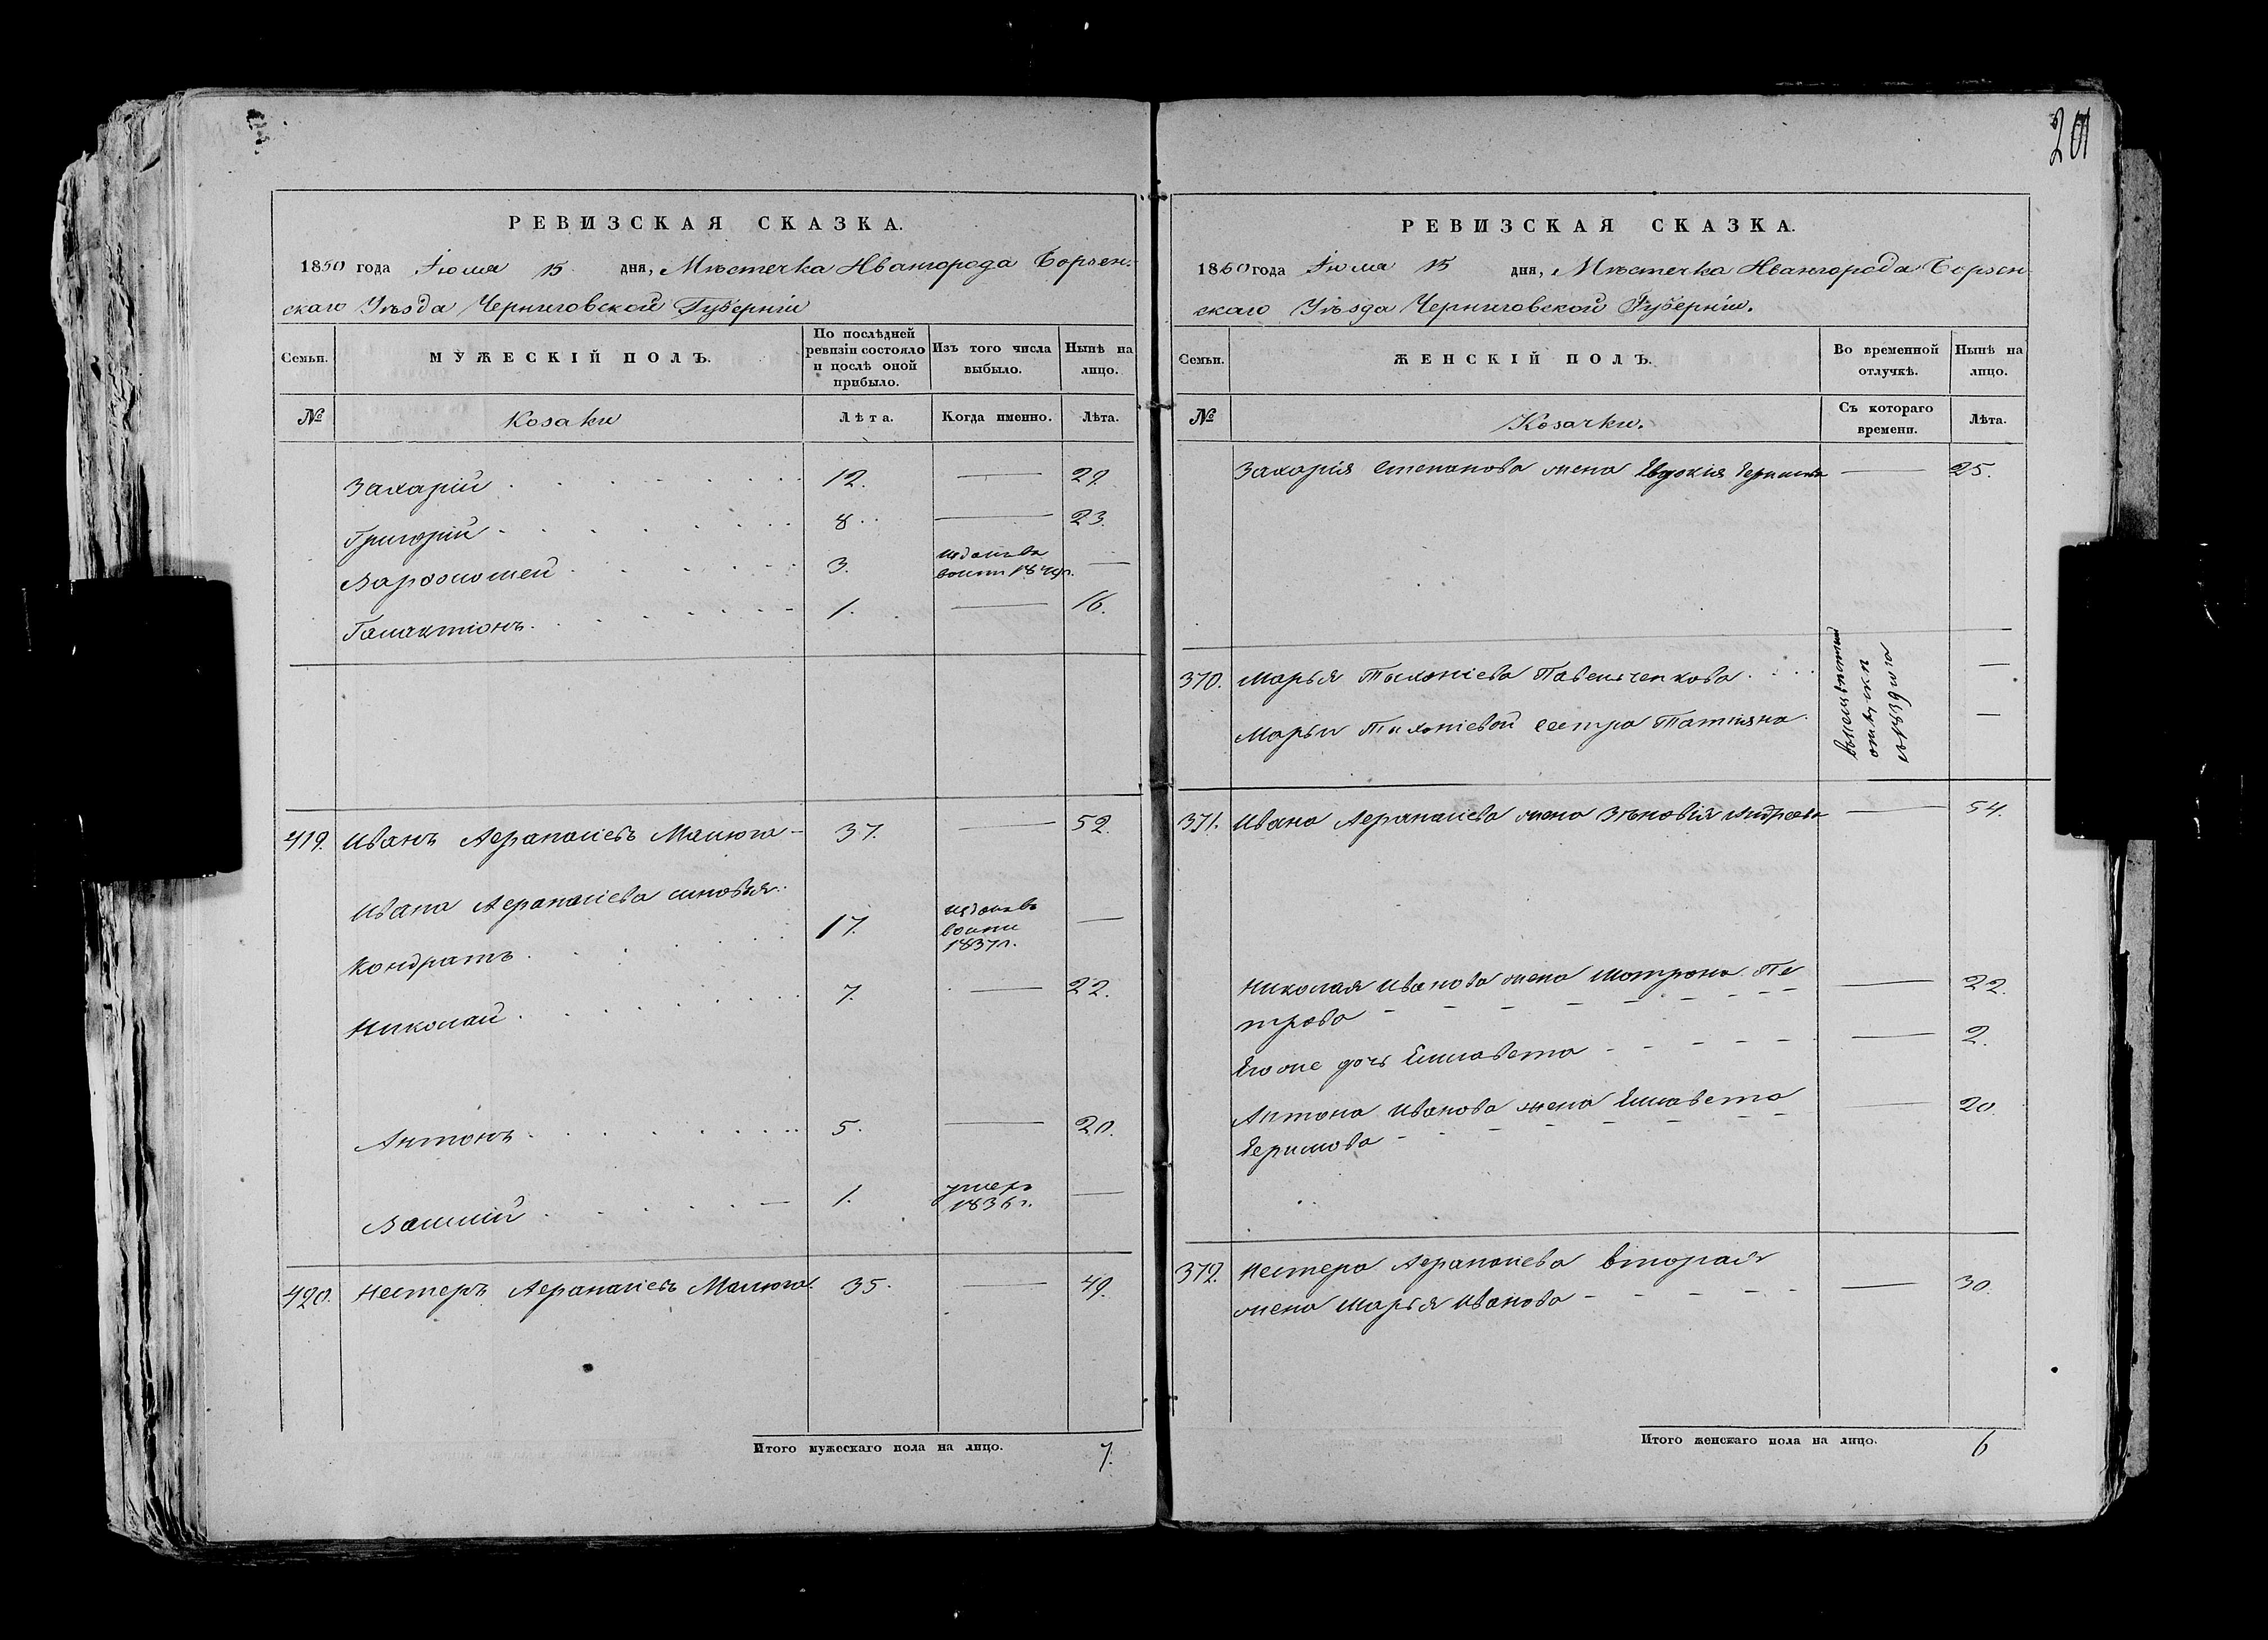 201
РЕВИЗСКАЯ СКАЗКА.
1850 года Іюля 15 дня, Мѣстечка Ивангорода Борзен-
скаго Уѣзда Черниговской Губерніи
Семьи. МУЖЕСКІЙ ПОЛЪ. По послѣдней ревизіи состояло и послѣ оной прибыло. Изъ того числа выбыло. Нынѣ на лицо.
№ Козаки Лѣта. Когда именно. Лѣта.
Захарій 12. — 27.
Григорій 8. — 23.
Варфоломей 3. —
Галактіонъ 1. — 16.
419. Иванъ Афанасіевъ Малюга 37. — 52.
Ивана Афанасіева сыновья
Кондратъ 17. 1837г. —
Николай 7. — 22.
Антонъ 5. — 20.
Василій 1. умеръ 1836г. —
420. Нестеръ Афанасіевъ Малюга 35. — 49.
Итого мужескаго пола на лицо. 7.
РЕВИЗСКАЯ СКАЗКА.
1850 года Іюля 15 дня, Мѣстечка Ивангорода Борзен
скаго Уѣзда Черниговской Губерніи.
Семьи. ЖЕНСКІЙ ПОЛЪ. Во временной отлучкѣ. Нынѣ на лицо.
№ Козачки. Съ котораго времени. Лѣта.
Захарія Степанова жена Евдокія — 25.
370. Марья —
Марьи сестра Татіяна —
371. Ивана Афанасіева жена Зѣновія — 54.
Николая Иванова жена Мотрона Пе
трова — 22.
Его же дочь Елисавета — 2.
Антона Иванова жена Елисавета
— 20.
372. Нестера Афанасіева вторая
жена Марья Иванова — 30.
Итого женскаго пола на лицо. 6